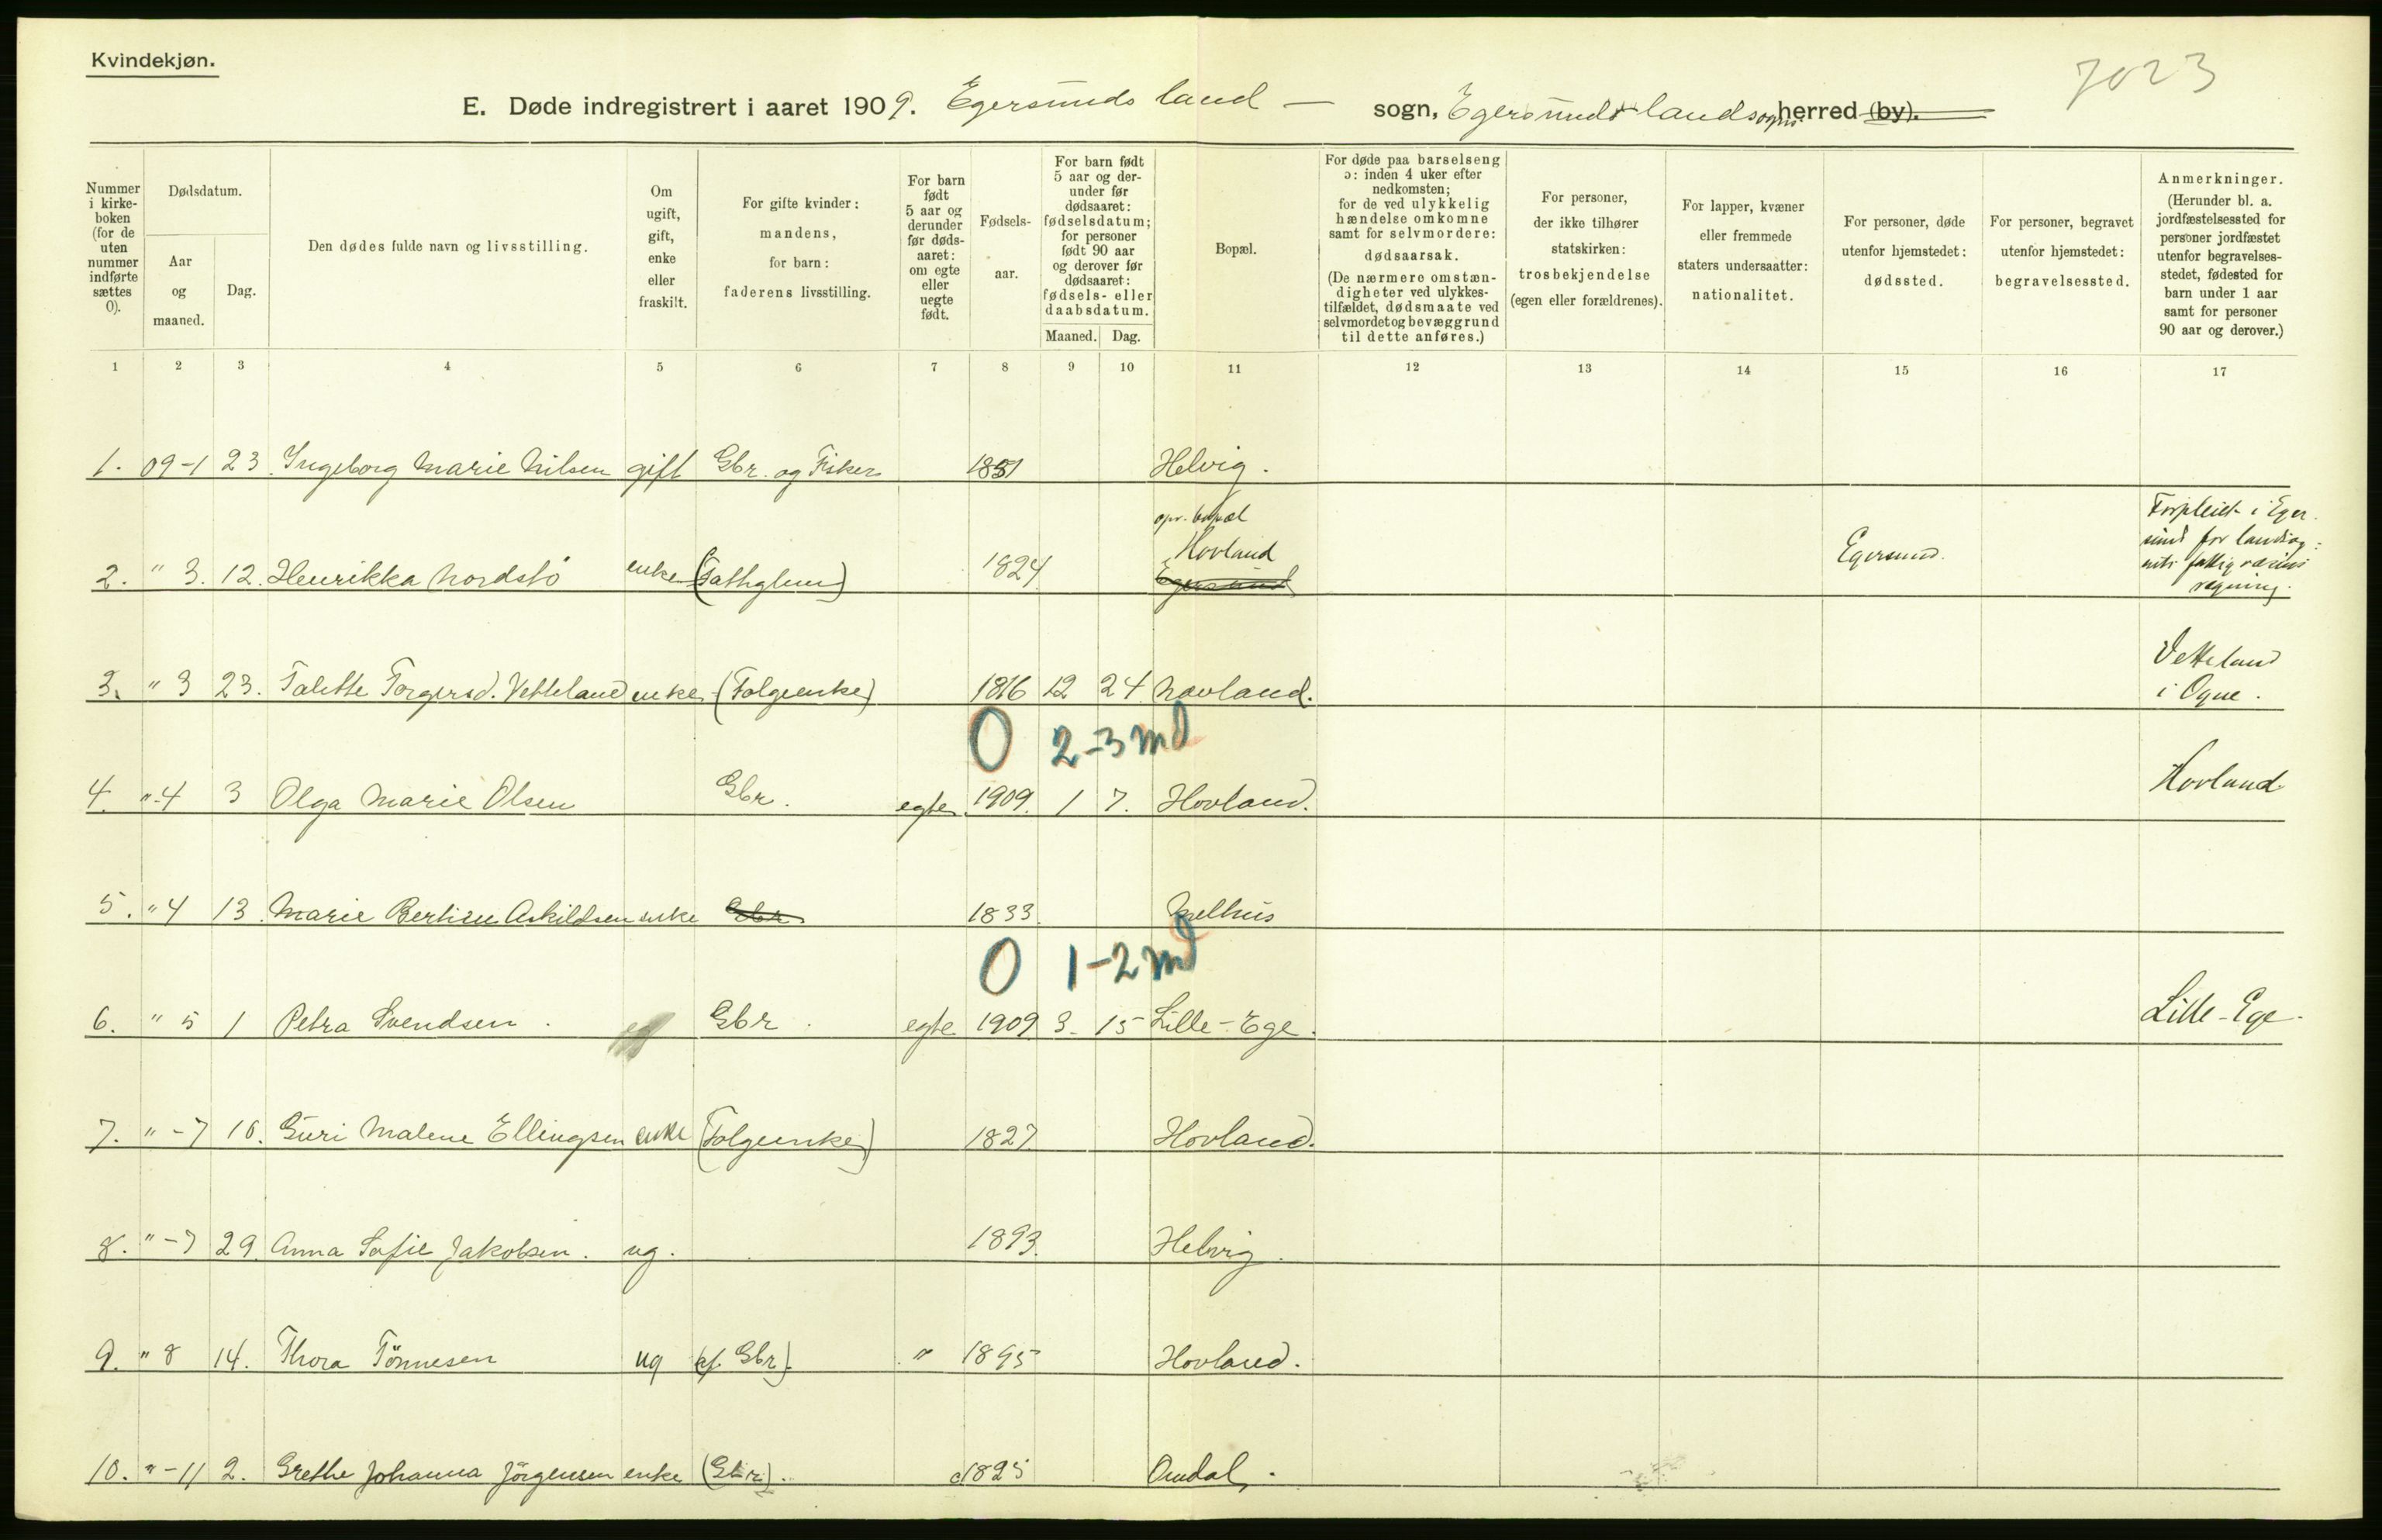 Kvindekjøn.
7023
E. Døde indregistrert i aaret 1909. Egersunds land — sogn, Egersunds landsogns herred (by).
Nummer i kirkeboken (for de uten nummer indførte sættes 0).
Dødsdatum.
Aar og maaned.
Dag.
Den dødes fulde navn og livsstilling.
Om ugift, gift, enke eller fraskilt.
For gifte kvinder: mandens, for barn: faderens livsstilling.
For barn født 5 aar og derunder før dødsaaret: om egte eller uegte født.
Fødselsaar.
For barn født 5 aar og derunder før dødsaaret: fødselsdatum; for personer født 90 aar og derover før dødsaaret: fødsels- eller daabsdatum.
Maaned. Dag.
Bopæl.
For døde paa barselseng ɔ: inden 4 uker efter nedkomsten; for de ved ulykkelig hændelse omkomne samt for selvmordere: dødsaarsak.
(De nærmere omstændigheter ved ulykkestilfældet, dødsmaate ved selvmordet og bevæggrund til dette anføres.)
For personer, der ikke tilhører statskirken: trosbekjendelse (egen eller forældrenes).
For lapper, kvæner eller fremmede staters undersaatter: nationalitet.
For personer, døde utenfor hjemstedet: dødssted.
For personer, begravet utenfor hjemstedet: begravelsessted.
Anmerkninger.
(Herunder bl. a. jordfæstelsessted for personer jordfæstet utenfor begravelsesstedet, fødested for barn under 1 aar samt for personer 90 aar og derover.)
1 2 3 4 5 6 7 8 9 10 11 12 13 14 15 16 17
1. 09-1 23. Ingeborg Marie Nilsen gift Gbr. og Fisker 1851 Helvig.
opr. bopæl
Hovland
2. " 3. 12. Henrikka Nordstö enke 1824 Egersund Egersund.
Forpleiet i Egersund for landsognets fattigvæsens regning.
3. " 3 23. Talette Torgersd. Vetteland enke (Folgeenke) 1816 12 24 Hovland. Vetteland i Ogne.
0 2-3 md
4. " -4 3 Olga Marie Olsen Gbr. egte 1909. 1 7. Hovland. Hovland
5. " 4 13. Marie Bertine Askildsen enke Gbr 1833. Melhus
0 1-2 md
6. " 5 1 Petra Svendsen. Gbr. egte 1909 3. 15 Lille-Ege. Lille-Ege.
7. " -7 10. Guri Malene Ellingsen enke (Folgeenke) 1827. Hovland.
8. " -7 29. Anna Sofie Jakobsen. ug. 1893. Helvig.
9. " 8 14. Thora Tönnesen ug (af Gbr). " 1895 Hovland.
10. " -11 2. Grethe Johanna Jörgensen enke (Gbr). 1825 Omdal.